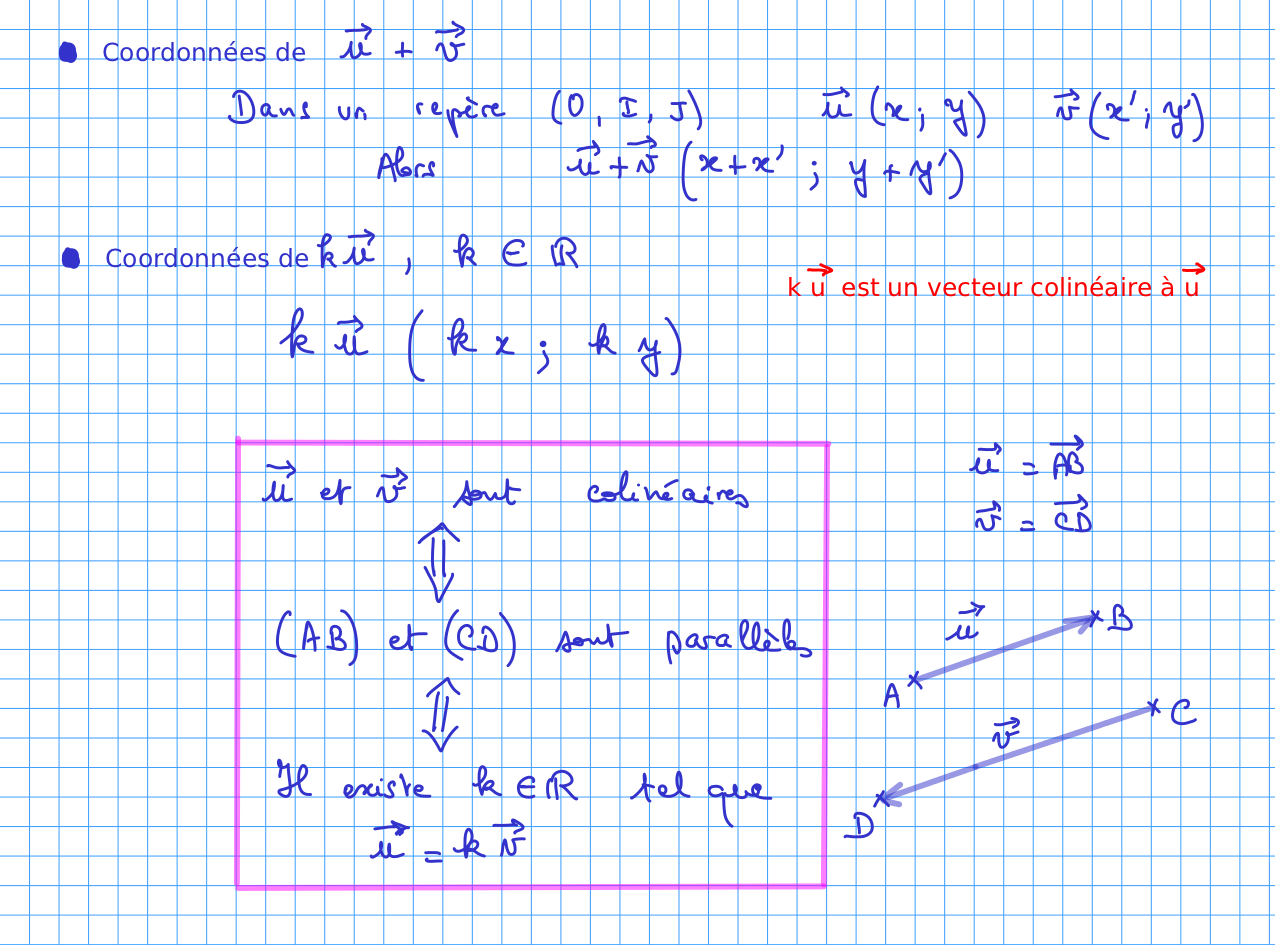 ● Coordonnées de $\vec{u} + \vec{v}$
Dans un repère (O, I, J) $\vec{u}$ (x ; y) $\vec{v}$ (x' ; y')
Alors $\vec{u} + \vec{v}$ (x + x' ; y + y')
● Coordonnées de $k\vec{u}$ , k ∈ ℝ
k $\vec{u}$ est un vecteur colinéaire à $\vec{u}$
k $\vec{u}$ ( k x ; k y )
$\vec{u}$ et $\vec{v}$ sont colinéaires
⇕
(AB) et (CD) sont parallèles
⇕
Il existe k ∈ ℝ tel que
$\vec{u}$ = k $\vec{v}$
$\vec{u}$ = $\overrightarrow{AB}$
$\vec{v}$ = $\overrightarrow{CD}$
$\vec{u}$
B
A
C
$\vec{v}$
D